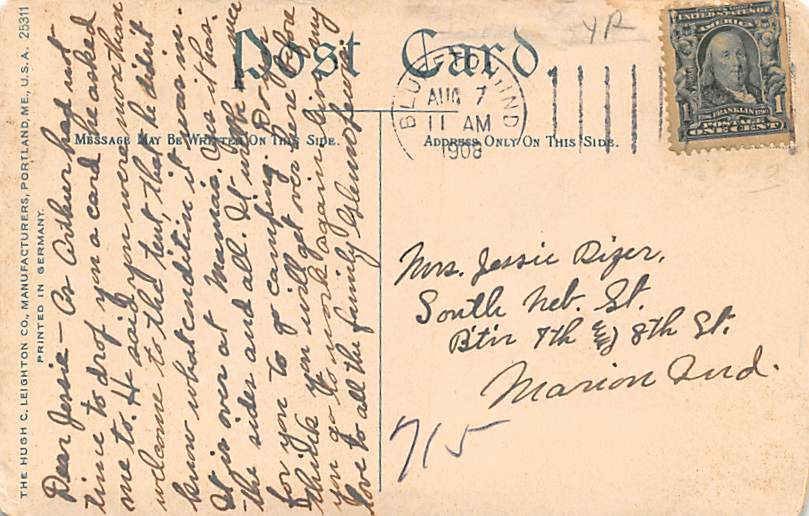 Post Card.
MESSAGE MAY BE WRITTEN ON THIS SIDE.
ADDRESS ONLY ON THIS SIDE.
THE HUGH C. LEIGHTON CO., MANUFACTURERS, PORTLAND, ME., U.S.A. 25311
PRINTED IN GERMANY.
YR
BLUFFTON, IND
AUG 7
11 AM
1908
UNITED STATES OF
AMERICA
1 1
FRANKLIN
POSTAGE
ONE CENT
Dear Jessie - As Arthur had not
time to drop you a card he asked
me to. He said you were more than
welcome to the tent, that he didn't
know what condition it was in.
It is over at Mamas. Yes it has
the sides and all. It is
for you to go camping. Do you
think you will get over here before
you go to work again. Give my
love to all the family Glenn Lewis
Mrs. Jessie Dizer,
South Neb. St.
Btw 7th & 8th St.
Marion Ind.
715